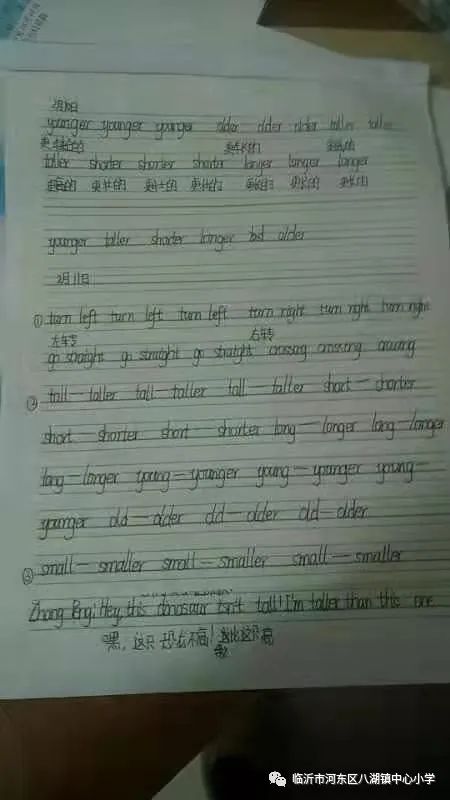 younger younger younger older older older taller taller
更年轻的 更年长的 更高的
taller shorter shorter shorter longer longer longer
更高的 更矮的 更矮的 更矮的 更长的 更长的 更长的
younger taller shorter longer old older
2月11日
① turn left turn left turn left turn right turn right turn right
左转 右转
go straight go straight go straight crossing crossing
② tall—taller tall—taller tall—taller short—shorter
short shorter short—shorter long—longer long—longer
long—longer young—younger young—younger young—
younger old—older old—older old—older
③ small—smaller small—smaller small—smaller
Zhang Peng: Hey, this dinosaur isn't tall! I'm taller than this one
嘿,这只恐龙不高!我比这只高
临沂市河东区八湖镇中心小学